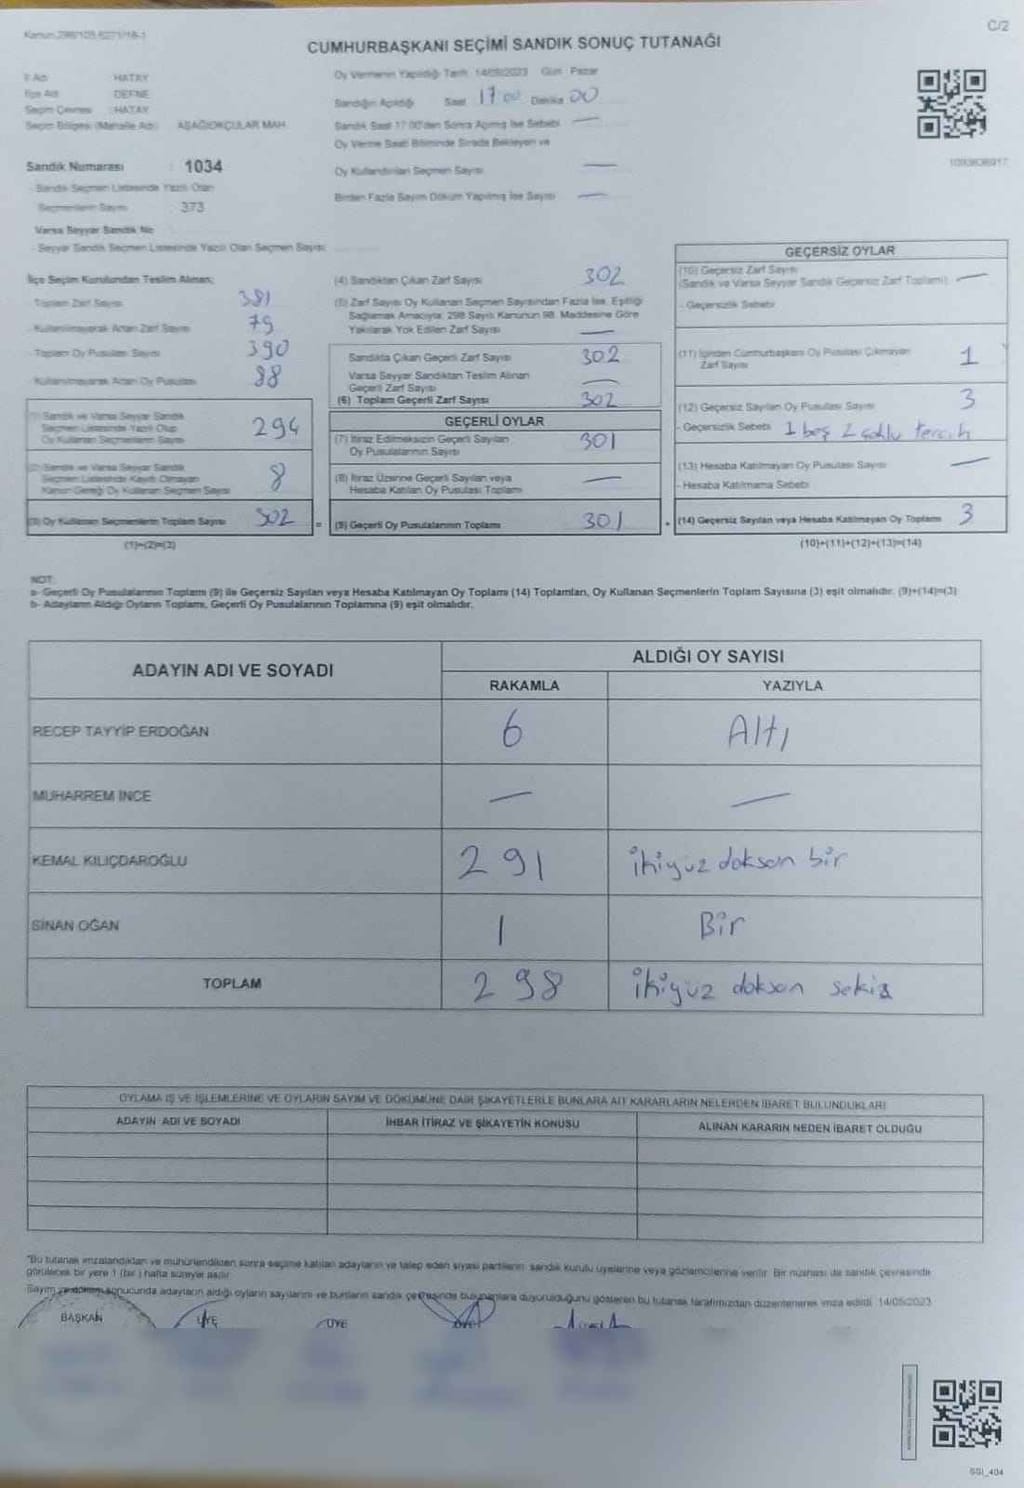 Kanun 298/105-6271/18-1
C/2
CUMHURBAŞKANI SEÇİMİ SANDIK SONUÇ TUTANAĞI
İl Adı HATAY
İlçe Adı DEFNE
Seçim Çevresi : HATAY
Seçim Bölgesi (Mahalle Adı) AŞAĞIOKÇULAR MAH.
Oy Vermenin Yapıldığı Tarih 14/05/2023 Gün Pazar
Sandığın Açıldığı Saat 17 00 Dakika 00
Sandık Saat 17:00'den Sonra Açılmış İse Sebebi —
Oy Verme Saati Bitiminde Sırada Bekleyen ve
Oy Kullandırılan Seçmen Sayısı —
Birden Fazla Sayım Döküm Yapılmış İse Sayısı —
Sandık Numarası : 1034
- Sandık Seçmen Listesinde Yazılı Olan
Seçmenlerin Sayısı 373
Varsa Seyyar Sandık No
- Seyyar Sandık Seçmen Listesinde Yazılı Olan Seçmen Sayısı
İlçe Seçim Kurulundan Teslim Alınan;
Toplam Zarf Sayısı 381
- Kullanılmayarak Artan Zarf Sayısı 79
- Toplam Oy Pusulası Sayısı 390
- Kullanılmayarak Artan Oy Pusulası 88
(1) Sandık ve Varsa Seyyar Sandık
Seçmen Listesinde Yazılı Olup
Oy Kullanan Seçmenlerin Sayısı 294
(2) Sandık ve Varsa Seyyar Sandık
Seçmen Listesinde Kayıtlı Olmayan
Kanun Gereği Oy Kullanan Seçmen Sayısı 8
(3) Oy Kullanan Seçmenlerin Toplam Sayısı 302
(1)+(2)=(3)
(4) Sandıktan Çıkan Zarf Sayısı 302
(5) Zarf Sayısı Oy Kullanan Seçmen Sayısından Fazla İse, Eşitliği
Sağlamak Amacıyla; 298 Sayılı Kanunun 98. Maddesine Göre
Yakılarak Yok Edilen Zarf Sayısı —
Sandıkta Çıkan Geçerli Zarf Sayısı 302
Varsa Seyyar Sandıktan Teslim Alınan
Geçerli Zarf Sayısı —
(6) Toplam Geçerli Zarf Sayısı 302
GEÇERLİ OYLAR
(7) İtiraz Edilmeksizin Geçerli Sayılan
Oy Pusulalarının Sayısı 301
(8) İtiraz Üzerine Geçerli Sayılan veya
Hesaba Katılan Oy Pusulası Toplamı —
= (9) Geçerli Oy Pusulalarının Toplamı 301
GEÇERSİZ OYLAR
(10) Geçersiz Zarf Sayısı
(Sandık ve Varsa Seyyar Sandık Geçersiz Zarf Toplamı) —
- Geçersizlik Sebebi
(11) İçinden Cumhurbaşkanı Oy Pusulası Çıkmayan
Zarf Sayısı 1
(12) Geçersiz Sayılan Oy Pusulası Sayısı 3
- Geçersizlik Sebebi 1 boş 2 çoklu tercih
(13) Hesaba Katılmayan Oy Pusulası Sayısı —
- Hesaba Katılmama Sebebi
+ (14) Geçersiz Sayılan veya Hesaba Katılmayan Oy Toplamı 3
(10)+(11)+(12)+(13)=(14)
NOT:
a- Geçerli Oy Pusulalarının Toplamı (9) ile Geçersiz Sayılan veya Hesaba Katılmayan Oy Toplamı (14) Toplamları, Oy Kullanan Seçmenlerin Toplam Sayısına (3) eşit olmalıdır. (9)+(14)=(3)
b- Adayların Aldığı Oyların Toplamı, Geçerli Oy Pusulalarının Toplamına (9) eşit olmalıdır.
ADAYIN ADI VE SOYADI
ALDIĞI OY SAYISI
RAKAMLA YAZIYLA
RECEP TAYYİP ERDOĞAN 6 Altı
MUHARREM İNCE — —
KEMAL KILIÇDAROĞLU 291 ikiyüz doksan bir
SİNAN OĞAN 1 Bir
TOPLAM 298 ikiyüz doksan sekiz
OYLAMA İŞ VE İŞLEMLERİNE VE OYLARIN SAYIM VE DÖKÜMÜNE DAİR ŞİKAYETLERLE BUNLARA AİT KARARLARIN NELERDEN İBARET BULUNDUKLARI
ADAYIN ADI VE SOYADI İHBAR İTİRAZ VE ŞİKAYETİN KONUSU ALINAN KARARIN NEDEN İBARET OLDUĞU
*Bu tutanak imzalandıktan ve mühürlendikten sonra seçime katılan adayların ve talep eden siyasi partilerin sandık kurulu üyelerine veya gözlemcilerine verilir. Bir nüshası da sandık çevresinde
görülecek bir yere 1 (bir) hafta süreyle asılır.
Sayım ve döküm sonucunda adayların aldığı oyların sayılarını ve bunların sandık çevresinde bulunanlara duyurulduğunu gösteren bu tutanak tarafımızdan düzenlenerek imza edildi. 14/05/2023
BAŞKAN ÜYE ÜYE ÜYE
SSI_404